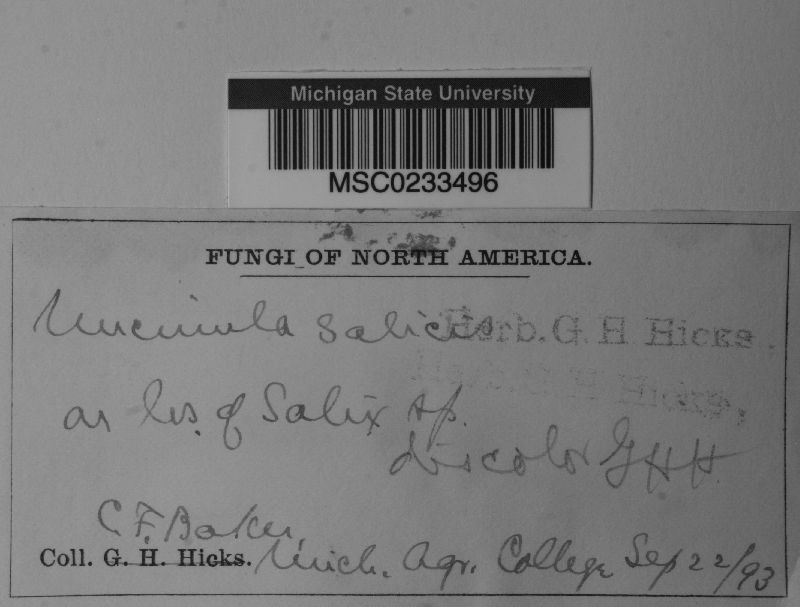 Michigan State University
MSC0233496
FUNGI OF NORTH AMERICA.
Uncinula salicis Herb. G. H. Hicks.
Herb. G. H. Hicks.
on lvs. of Salix sp.
discolor GHH
C. F. Baker,
Coll. G. H. Hicks. Mich. Agr. College Sep 22/93